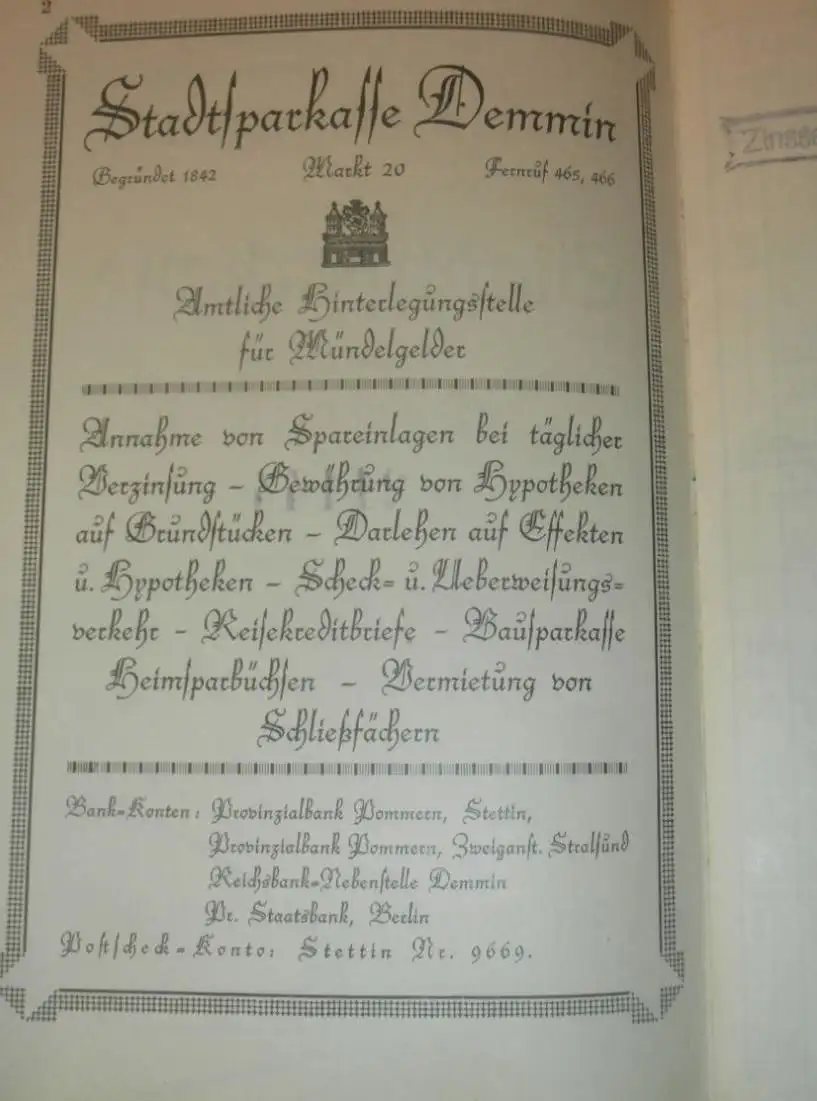 2
Stadtsparkasse Demmin
Begründet 1842 Markt 20 Fernruf 465, 466
Amtliche Hinterlegungsstelle
für Mündelgelder
Annahme von Spareinlagen bei täglicher
Verzinsung – Gewährung von Hypotheken
auf Grundstücken – Darlehen auf Effekten
u. Hypotheken – Scheck= u. Ueberweisungs=
verkehr – Reisekreditbriefe – Bausparkasse
Heimsparbüchsen – Vermietung von
Schließfächern
Bank=Konten: Provinzialbank Pommern, Stettin,
Provinzialbank Pommern, Zweiganst. Stralsund
Reichsbank=Nebenstelle Demmin
Pr. Staatsbank, Berlin
Postscheck=Konto: Stettin Nr. 9669.